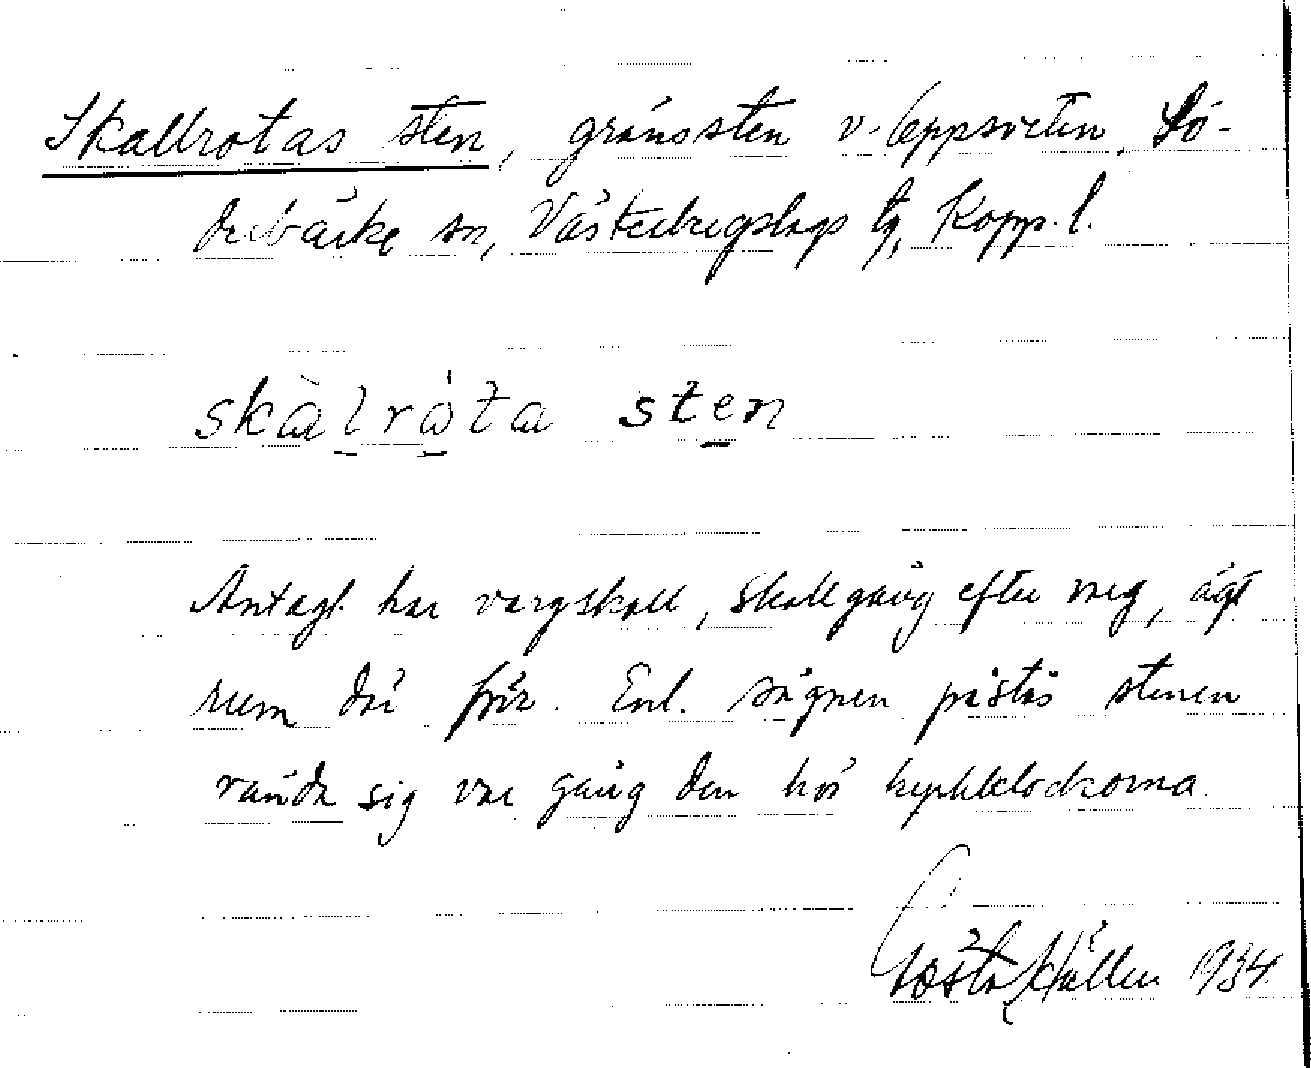 Skallrotas sten, gränssten v. Leppsveten, Sö-
derbärke sn, Västerbergslags tg, Kopp. l.
skàlròta sten
Antagl. har vargskall, skallgång efter varg, ägt
rum där förr. Enl. sägnen påstås stenen
vända sig var gång den hör kyrkklockorna.
Gösta Källen 1934